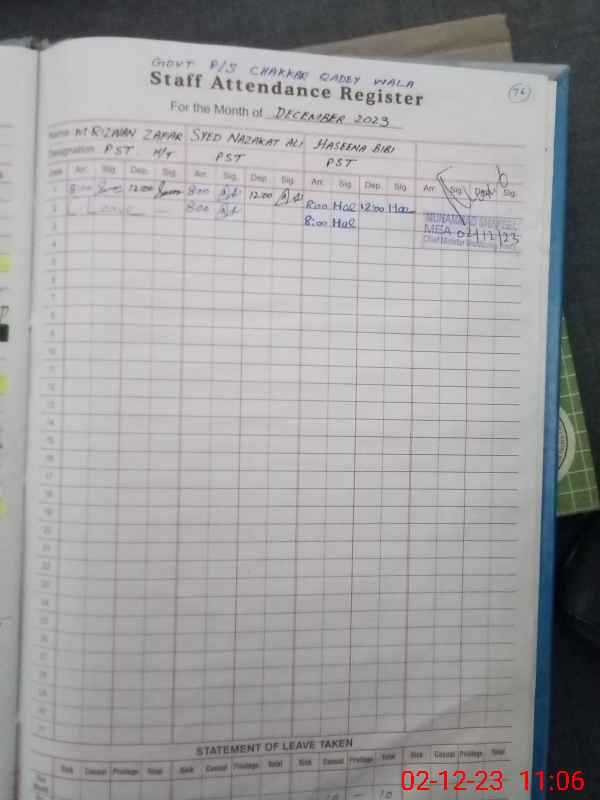 GOVT P/S CHAKKAR QADEY WALA
Staff Attendance Register
76
For the Month of DECEMBER 2023
Name M RIZWAN ZAFAR SYED NAZAKAT ALI HASEENA BIBI
Designation PST H/T PST PST
Date Arr. Sig. Dep. Sig. Arr. Sig. Dep. Sig. Arr. Sig. Dep. Sig. Arr. Sig. Dep. Sig.
1 8:00 12:00 8:00 12:00 8:00 Hal 12:00 Hal
2 Leave 8:00 8:00 Hal
MUHAMMAD
MEA 02/12/23
Chief Minister Monitoring Force
3
4
5
6
7
8
9
10
11
12
13
14
15
16
17
18
19
20
21
22
23
24
25
26
27
28
29
30
31
STATEMENT OF LEAVE TAKEN
Sick Casual Privilege Total Sick Casual Privilege Total Sick Casual Privilege Total Sick Casual Privilege Total
This Month 10 - 10
02-12-23 11:06